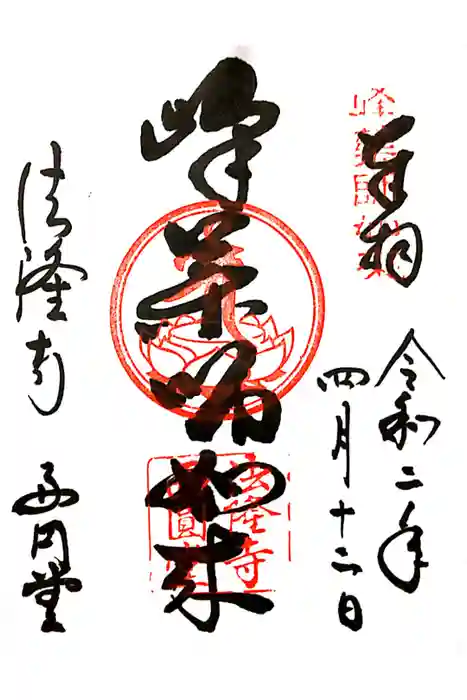 奉拝
峰薬師如来
令和二年
四月十二日
峰薬師如来
法隆寺
西円堂
法隆寺
西圓堂